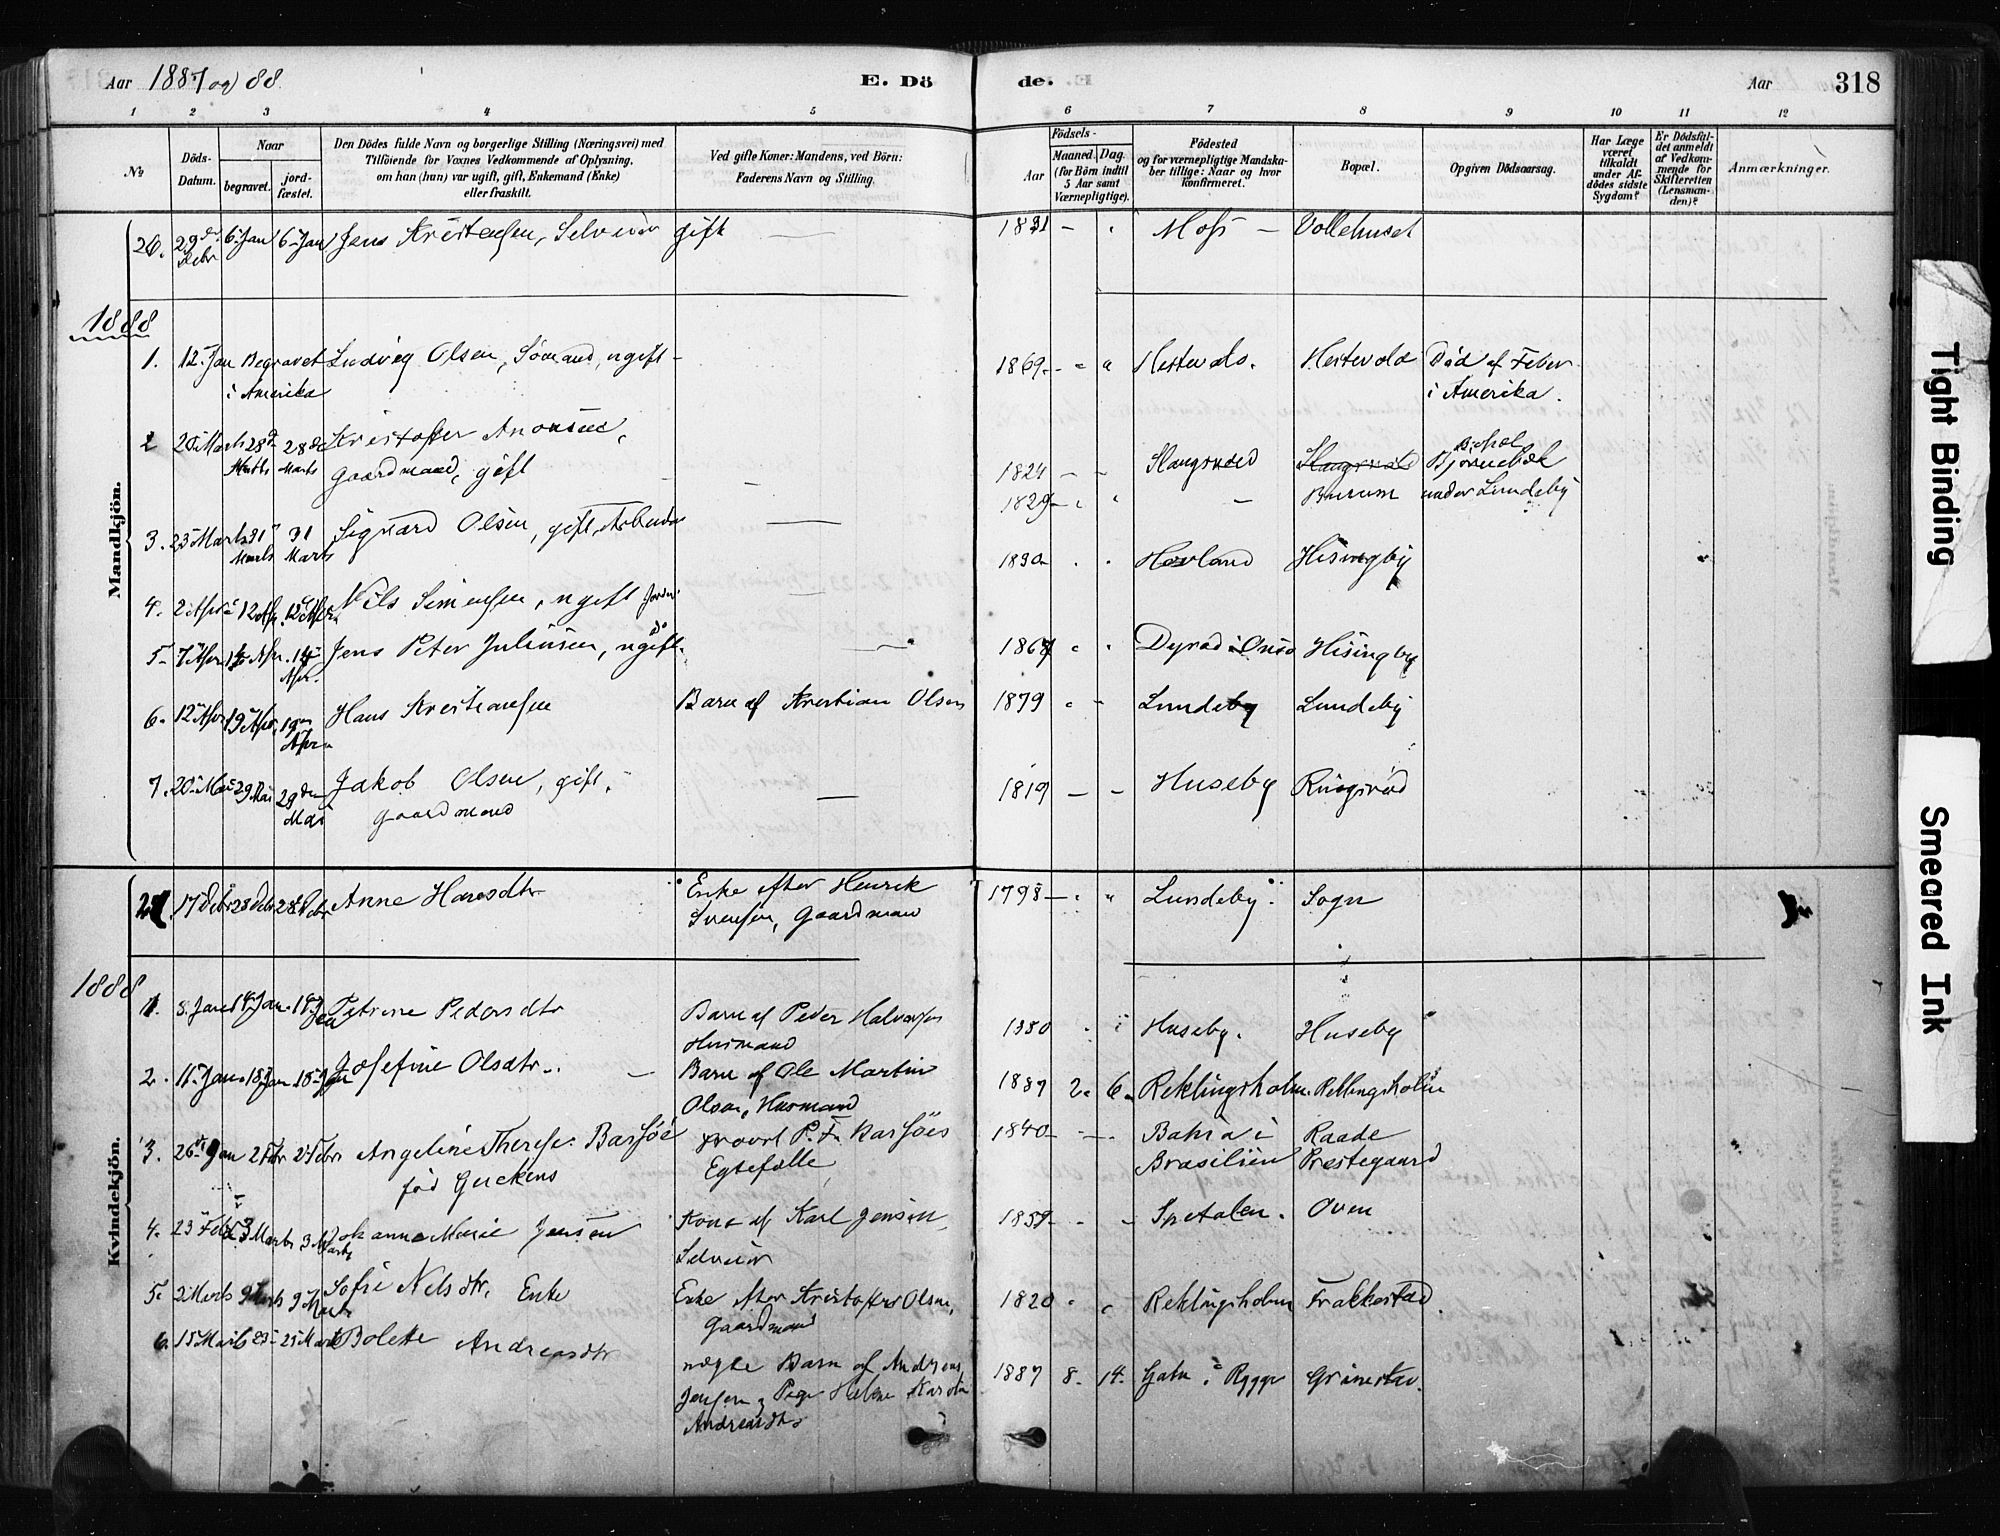 Aar 1887 og 88.
E. Döde.
Aar 318
1 2 3 4 5 6 7 8 9 10 11 12
No
Döds-Datum.
Naar
begravet.
jord-fæstet.
Den Dödes fulde Navn og borgerlige Stilling (Næringsvei) med
Tilföiende for Voxnes Vedkommende af Oplysning,
om han (hun) var ugift, gift, Enkemand (Enke)
eller fraskilt.
Ved gifte Koner: Mandens, ved Börn:
Faderens Navn og Stilling.
Födsels-
Aar
Maaned. Dag.
(for Börn indtil
5 Aar samt
Værnepligtige).
Födested
og for værnepligtige Mandska-
ber tillige: Naar og hvor
konfirmeret.
Bopæl.
Opgiven Dödsaarsag.
Har Læge
været
tilkaldt
under Af-
dödes sidste
Sygdom?
Er Dödsfal-
det anmeldt
af Vedkom-
mende for
Skifteretten
(Lensman-
den)?
Anmærkninger.
Mandkjön.
20. 29de Debr 6 Jan 6 Jan Jens Kristensen, Selveier gift — 1831 - Moss - Vollehuset
1888
1. 12 Jan Begravet i Amerika Ludvig Olsen, Sömand, ugift - 1869 - Hestevold. Hestevold Död af Feber
i Amerika.
2 20 Marts 28de Marts 28de Marts Kristoffer
Gaardmand, gift - 1824 - - Slangsvold Slangsvold Bjørnebæk
1829 - Burum under Lundeby
3. 23 Marts 31 Marts 31 Marts Sigvard Olsen, gift, — 1830 Hovland Hisingby
4. 2 Apr 12 Apr. 12 Apr. Nils Simensen, ugift
5 7 Apr 14 Apr. 14 Apr. Jens Peter Juliusen, ugift. — 1867 Dyrød i Onsø Hisingby
6. 12 Apr 19 Apr. 19 Apr. Hans Kristiansen Barn af Kristian Olsen 1879 - Lundeby Lundeby
7. 20 Mai 29 Mai 29den Mai Jakob Olsen, gift, — 1819 - - Huseby Ringsrød
Gaardmand
Kvindekjön.
21. 17 Debr 28 Debr 28 Debr Anne Hansdtr Enke efter Henrik
Svensen, Gaardmand 1798 - Lundeby. Sogn
1888
1. 8. Jan 18 Jan. 18 Jan Petrine Pedersdtr Barn af Peder Halvorsen
Husmand 1880 Huseby. Huseby
2. 11 Jan. 18 Jan 18 Jan Josefine Olsdtr. - Barn af Ole Martin
Olsen, Husmand 1887 2. 6. Reklingsholm. Reklingsholm
3. 26 Jan 2 Febr 2 Febr Angeline Therese Barsøe
fød Gerckens Provst P. F. Barsöes
Egtefælle 1840 - Bahia i
Brasilien Raade
Prestegaard
4. 23 Feb 3 Marts 3 Marts Johanne Marie Jensen Kone af Karl Jensen,
Selveier 1859 - - Spetalen. Oven
5. 2 Marts 9 Marts 9 Marts Sofie Nelsdtr. Enke Enke efter Kristoffer Olsen,
Gaardmand 1820 Reklingsholm Frakkestad.
6. 15 Marts 25 25 Marts Bolette Andreasdtr uægte Barn af Andreas
Jensen og Pige Helene Karoline
Andreasdtr 1887 8. 14. Gatu i Rygge Grimestad.
Tight Binding
Smeared Ink